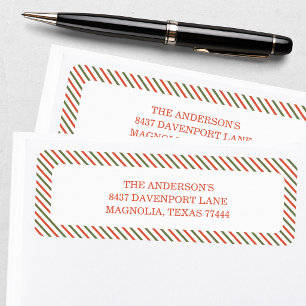 THE ANDERSON'S
8437 DAVENPORT LANE
THE ANDERSON'S
8437 DAVENPORT LANE
MAGNOLIA, TEXAS 77444